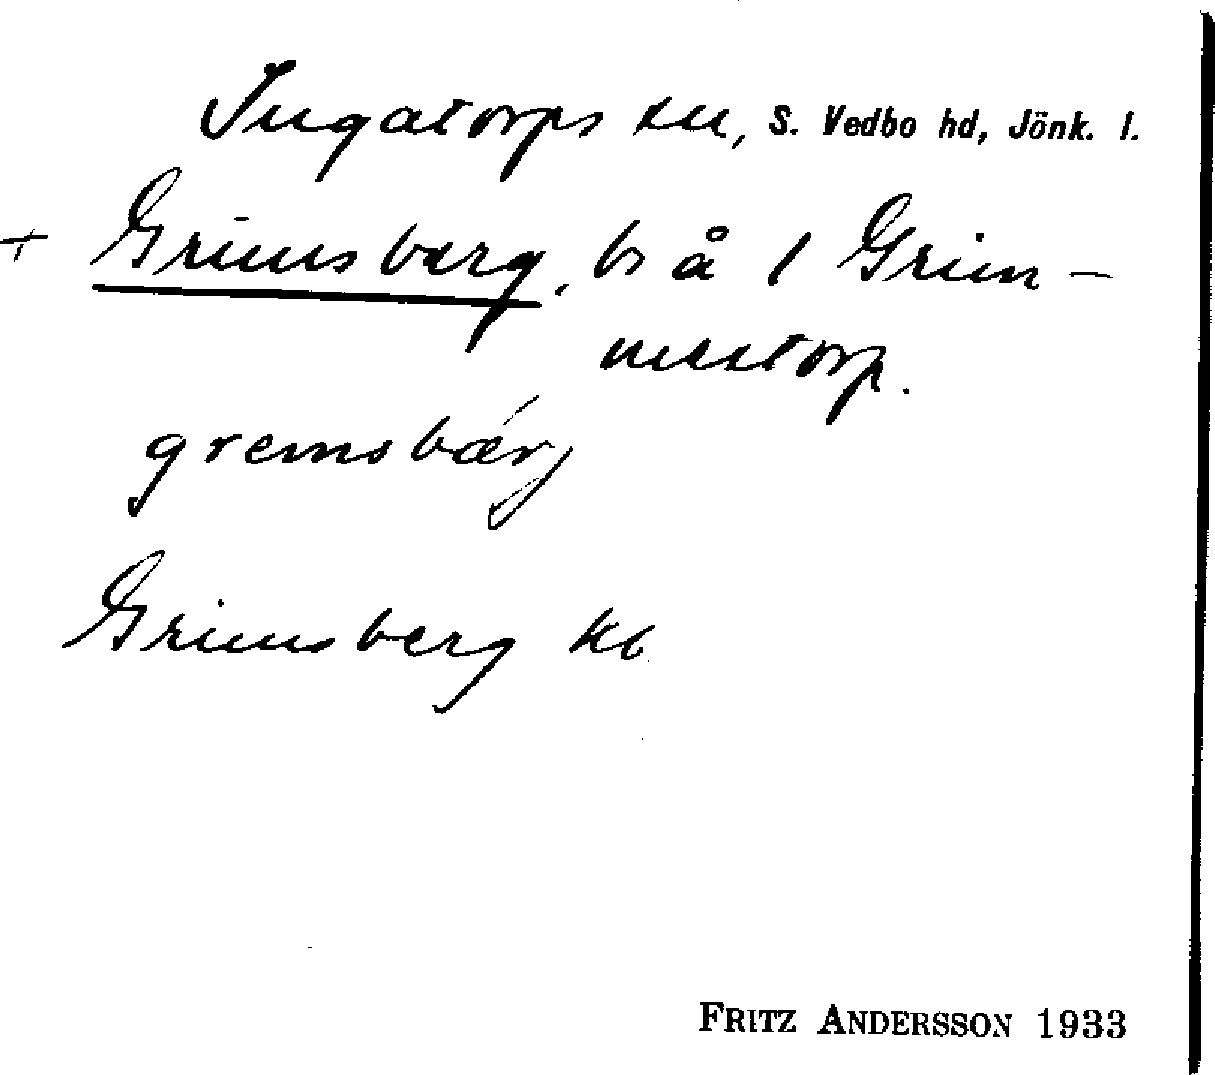 Ingatorps sn, S. Vedbo hd, Jönk. l.
+ Grimsberg, bs å 1 Grim-
mestorp.
gremsbærj
Grimsberg kb
FRITZ ANDERSSON 1933